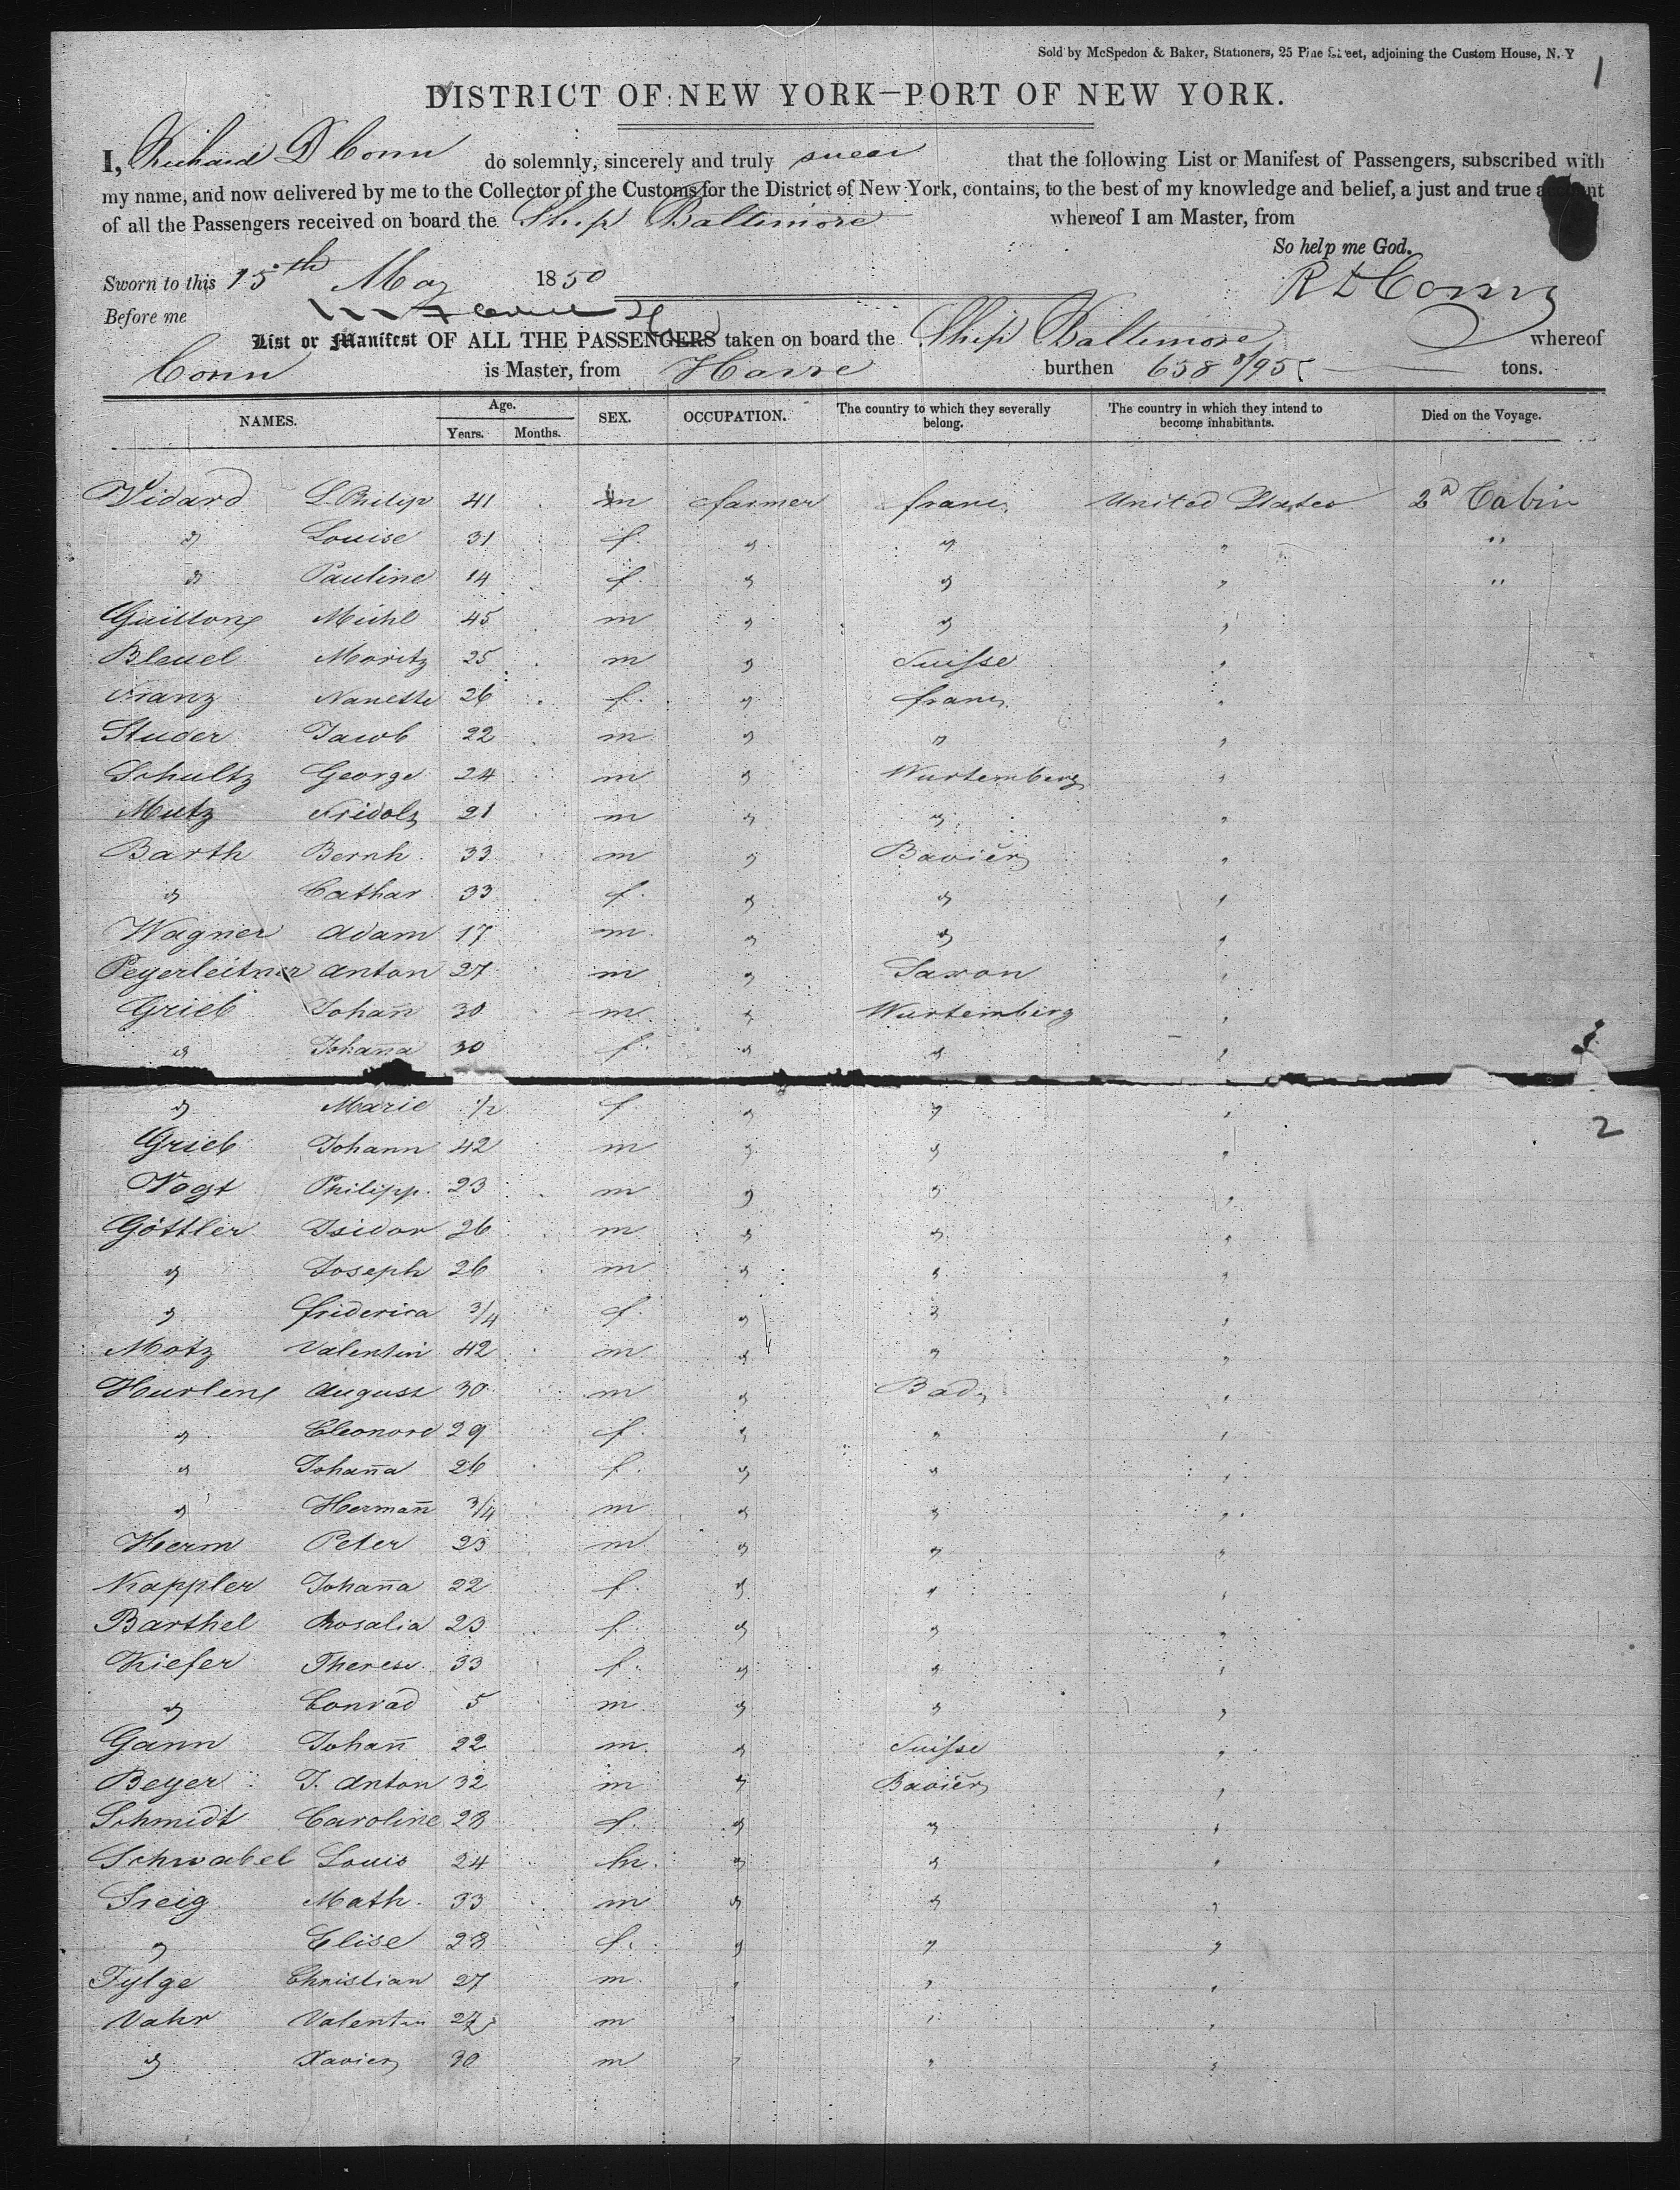 Sold by McSpedon & Baker, Stationers, 25 Pine Street, adjoining the Custom House, N. Y
1
DISTRICT OF NEW YORK—PORT OF NEW YORK.
I, Richard D Conn do solemnly, sincerely and truly swear that the following List or Manifest of Passengers, subscribed with
my name, and now delivered by me to the Collector of the Customs for the District of New York, contains, to the best of my knowledge and belief, a just and true account
of all the Passengers received on board the Ship Baltimore whereof I am Master, from
So help me God.
Sworn to this 15th May 1850 R D Conn
Before me
List or Manifest OF ALL THE PASSENGERS taken on board the Ship Baltimore whereof
Conn is Master, from Havre burthen 658 8/95 tons.
NAMES. Age. Years. Months. SEX. OCCUPATION. The country to which they severally belong. The country in which they intend to become inhabitants. Died on the Voyage.
Vidard L. Philip 41 m farmer france United States 2d Cabin
" Louise 31 f. " " " "
" Pauline 14 f. " " " "
Michl 45 m " " "
Bleuel Moritz 25 m " Suisse "
Franz Nanette 26 f. " france "
Studer Jacob 22 m " " "
Schultz George 24 m " Wurtemberg "
Mutz Fridolz 21 m " " "
Barth Bernh. 33 m " Baviere "
" Cathar 33 f. " " "
Wagner Adam 17 m " " "
Peyerleitner Anton 27 m " Saxon "
Grieb Johan̄ 30 m " Wurtemberg "
" Johana 30 f. " " "
" Marie 1/2 f " " "
2
Grieb Johann 42 m " " "
Vogt Philipp. 23 m " " "
Göttler Isidor 26 m " " "
" Joseph 26 m " " "
" friderica 3/4 f. " " "
Motz Valentin 42 m " " "
August 30 m " Bade "
" Eleonore 29 f. " " "
" Johan̄a 26 f. " " "
" Herman̄ 3/4 m " " "
Herm Peter 23 m " " "
Kappler Johan̄a 22 f. " " "
Barthel Rosalia 23 f. " " "
Kiefer Therese. 33 f. " " "
" Conrad 5 m " " "
Gann Johan̄ 22 m. " Suisse "
Beyer J. Anton 32 m " Baviere "
Schmidt Caroline 28 f. " " "
Schwabel Louis 24 m. " " "
Math. 33 m " " "
" Elise 28 f. " " "
Tylge Christian 27 m. " " "
Vahr Valentin 27 m " " "
" Xavier 30 m " " "